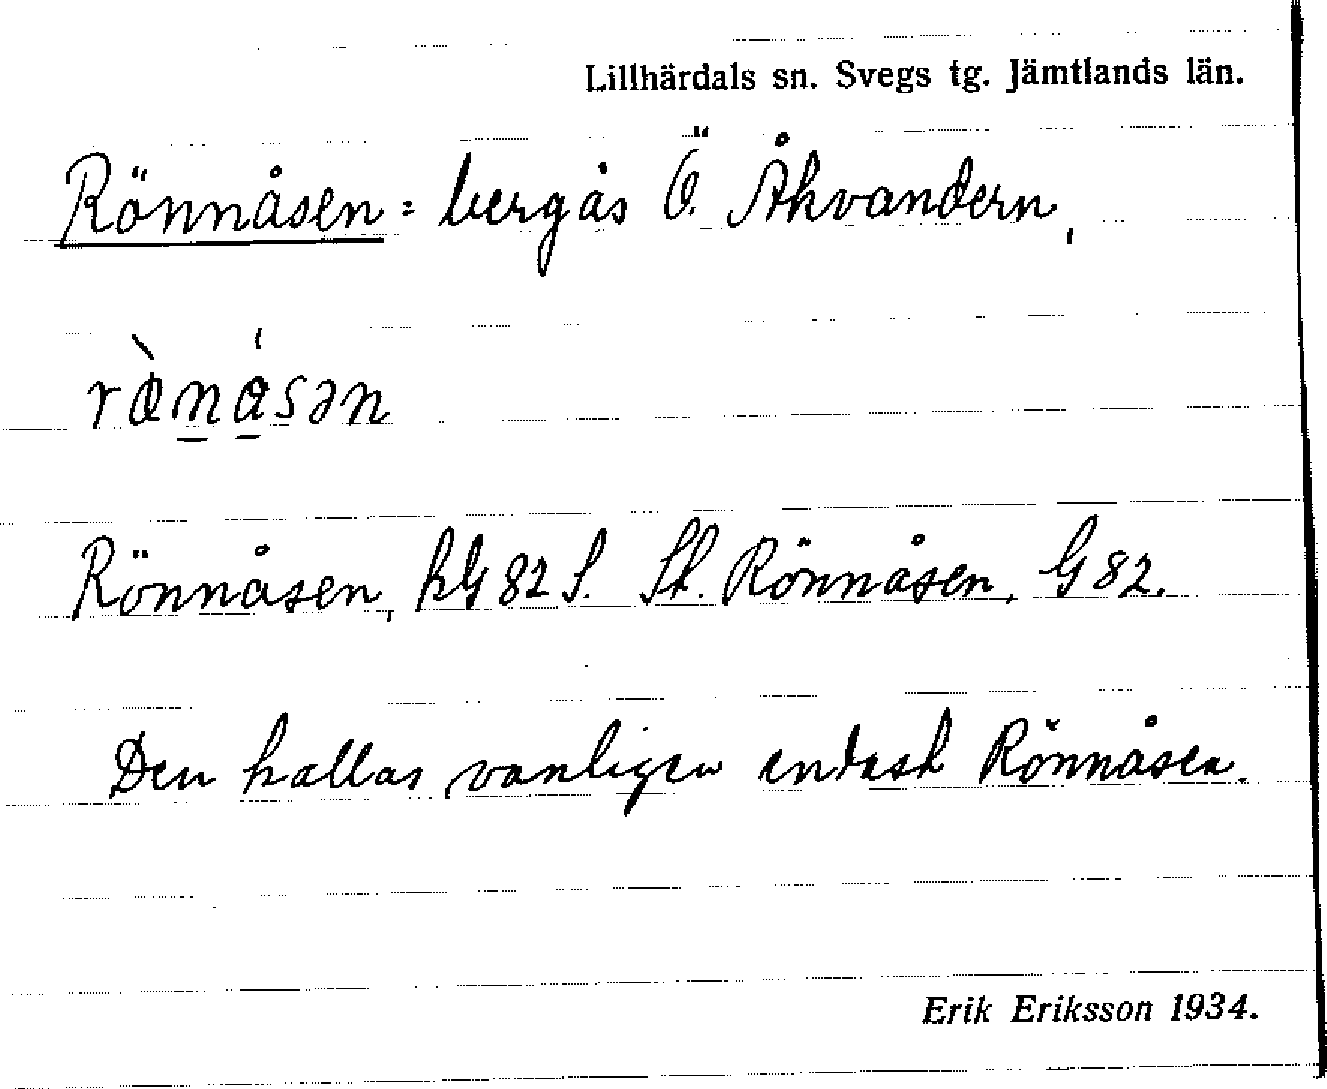 Lillhärdals sn. Svegs tg. Jämtlands län.
Rönnåsen = bergås Ö. Åkvandern,
Rönnåsen, kG82S. St. Rönnåsen, G82.
Den kallas vanligen endast Rönnåsen.
Erik Eriksson 1934.